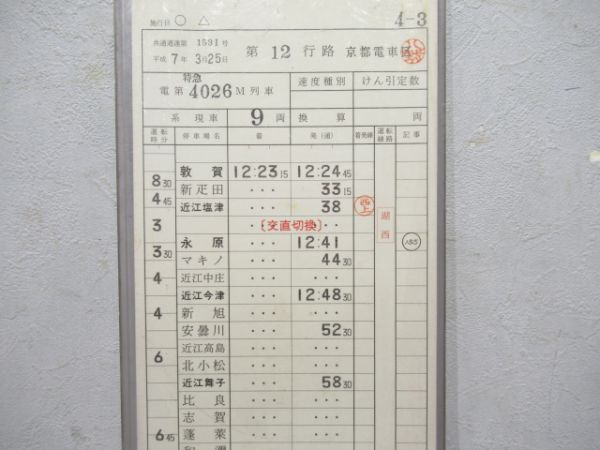 施行日 ○ △
4-3
共通過達第 1591号
平成 7年 3月25日
第 12 行路 京都電車区
特急
電第 4026 M列車
速度種別 けん引定数
系 現車 9 両 換算 両
運転時分 停車場名 着 発(通) 着発線 運転線路 記事
敦賀 12:23 15 12:24 45
8 30
新疋田 ... 33 15
4 45
近江塩津 ... 38 西上
3
〔交直切換〕
湖西
永原 ... 12:41 155
3 30
マキノ ... 44 30
4
近江中庄 ... ...
近江今津 ... 12:48 30
4
新旭 ... ...
安曇川 ... 52 30
6
近江高島 ... ...
北小松 ... ...
近江舞子 ... 58 30
比良 ... ...
志賀 ... ...
6 45
蓬莱 ... ...